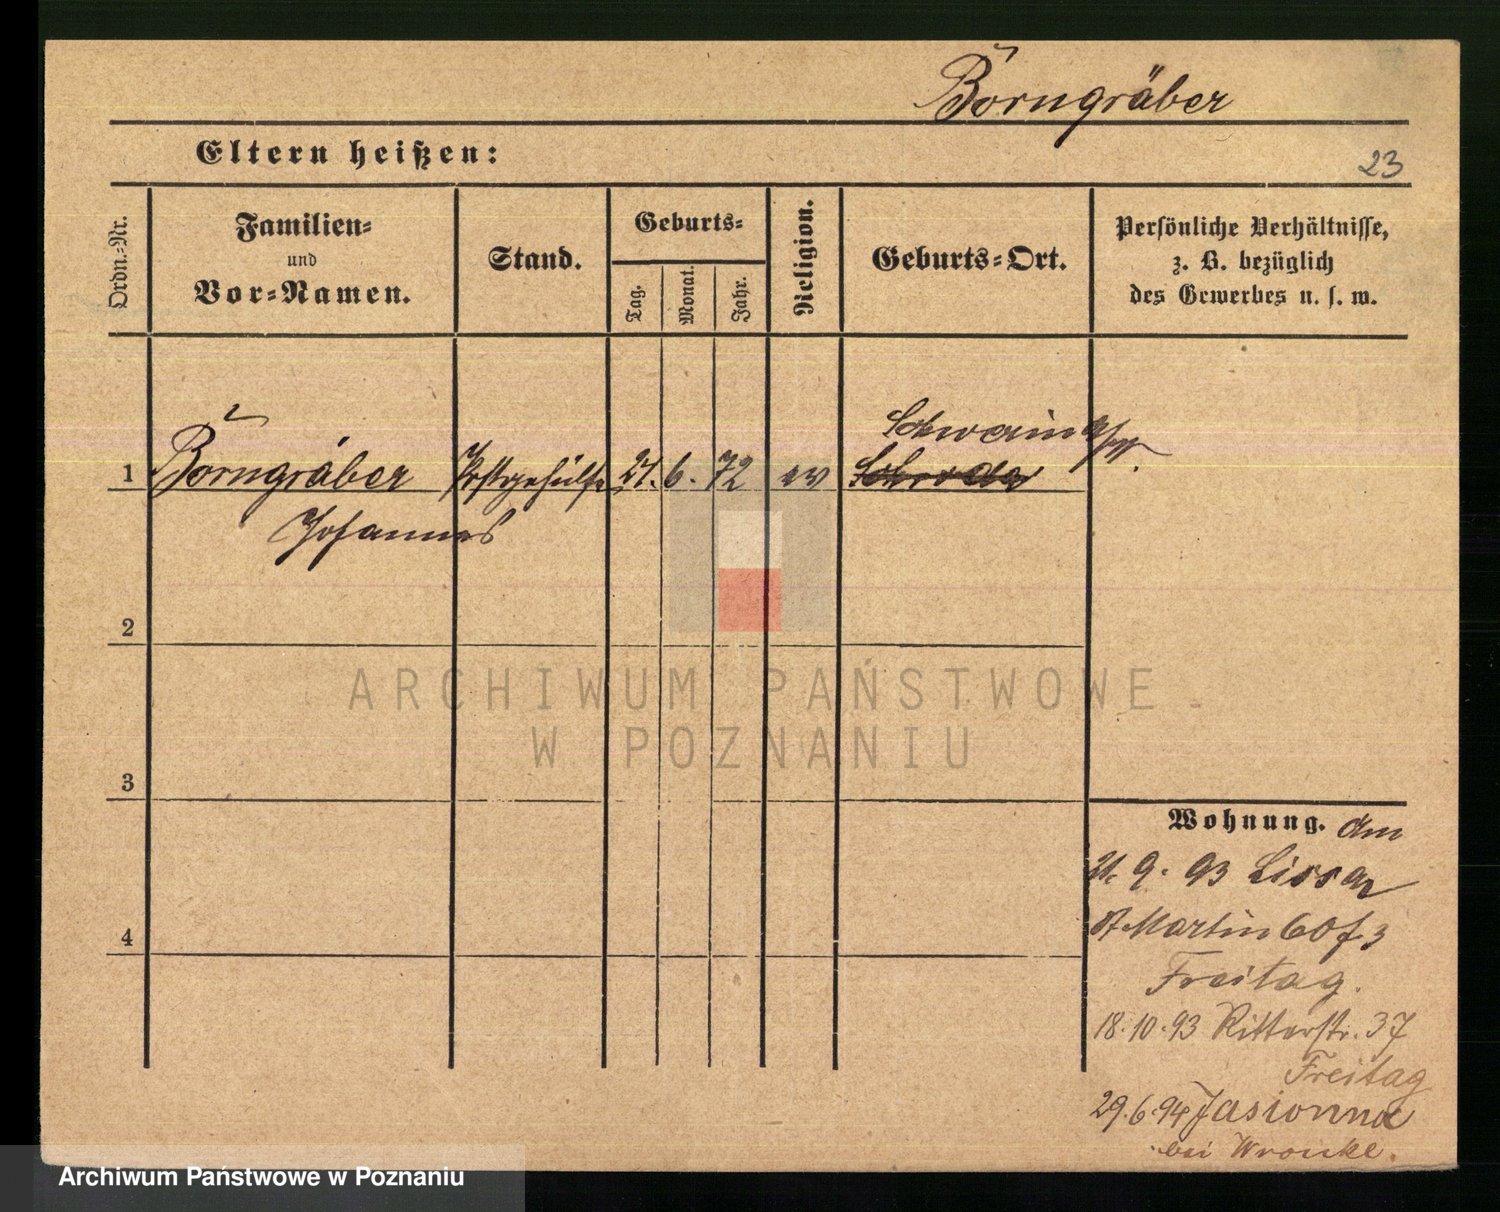 Börngräber
Eltern heißen:
23
Ordn.-Nr.
Familien-
und
Vor-Namen.
Stand.
Geburts-
Tag.
Monat.
Jahr.
Religion.
Geburts-Ort.
Persönliche Verhältnisse,
z. B. bezüglich
des Gewerbes u. s. w.
1
Börngräber
Johannes
Postgehülfe
21. 6. 72
ev
Schroda
2
3
4
Wohnung. am
21. 9. 93 Lissa
St Martin 60 f 3
Freitag.
18.10.93 Ritterstr. 37
Freitag
29.6.94 Jasionna
bei Wronke.
ARCHIWUM PAŃSTWOWE
W POZNANIU
Archiwum Państwowe w Poznaniu